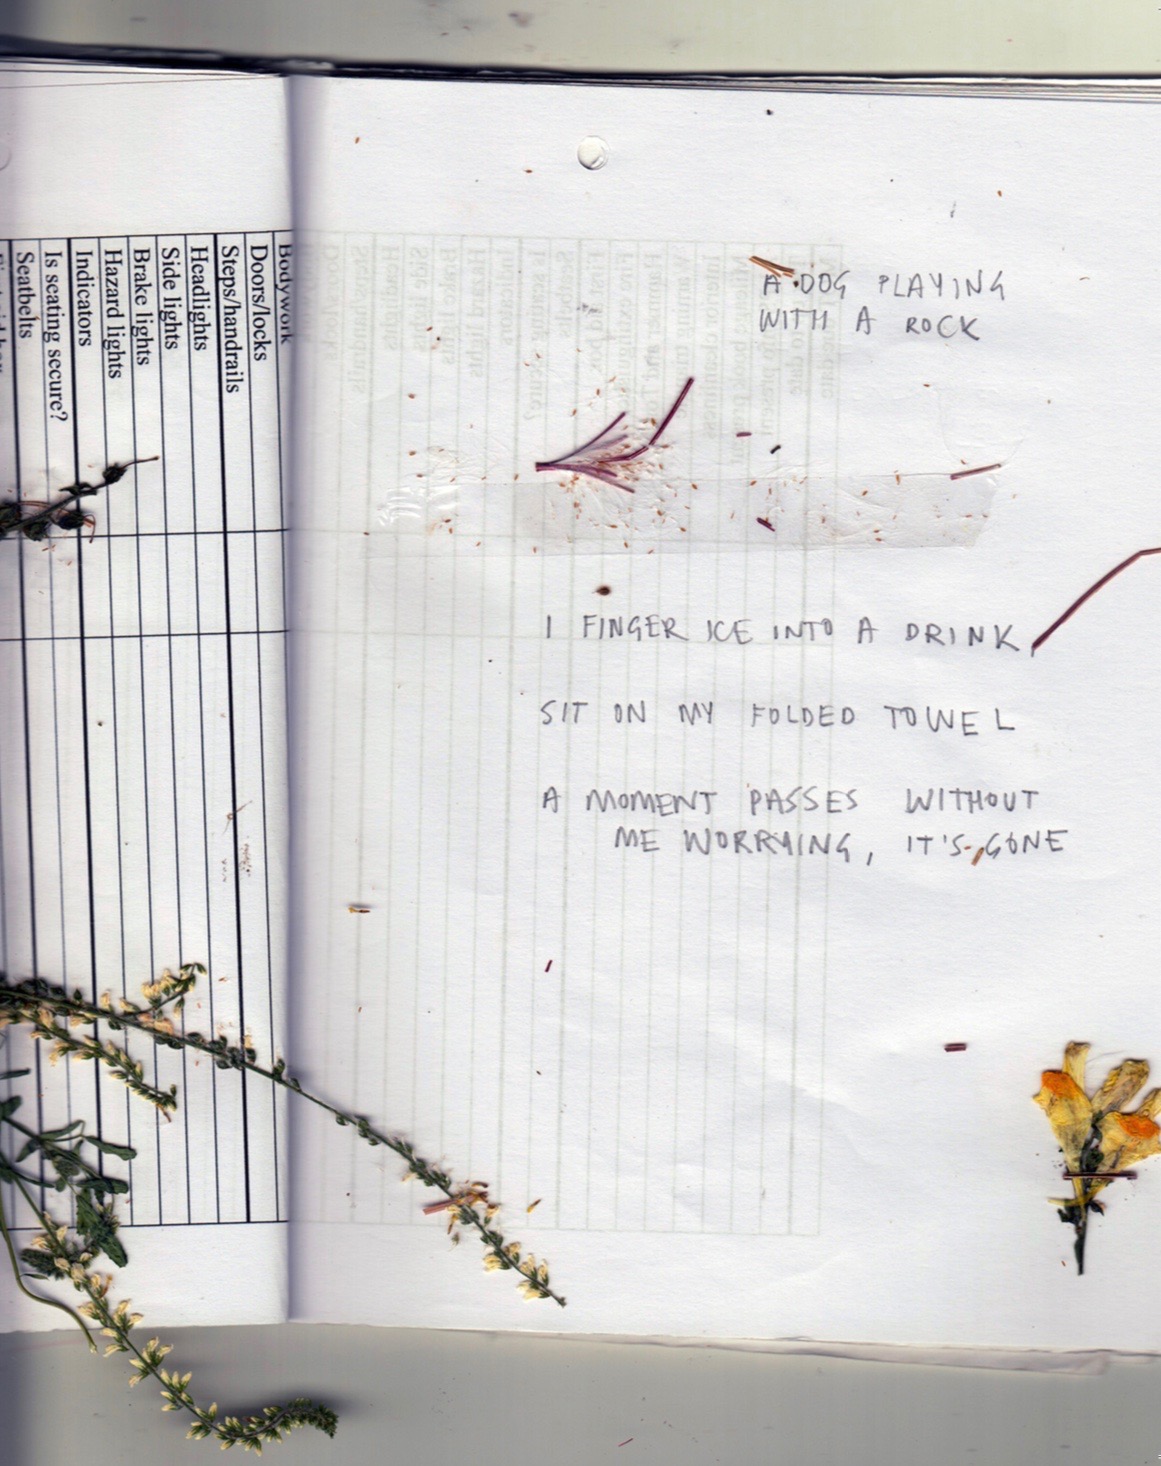 Bodywork
Doors/locks
Steps/handrails
Headlights
Side lights
Brake lights
Hazard lights
Indicators
Is seating secure?
Seatbelts
A DOG PLAYING
WITH A ROCK
I FINGER ICE INTO A DRINK,
SIT ON MY FOLDED TOWEL
A MOMENT PASSES WITHOUT
ME WORRYING, IT'S GONE